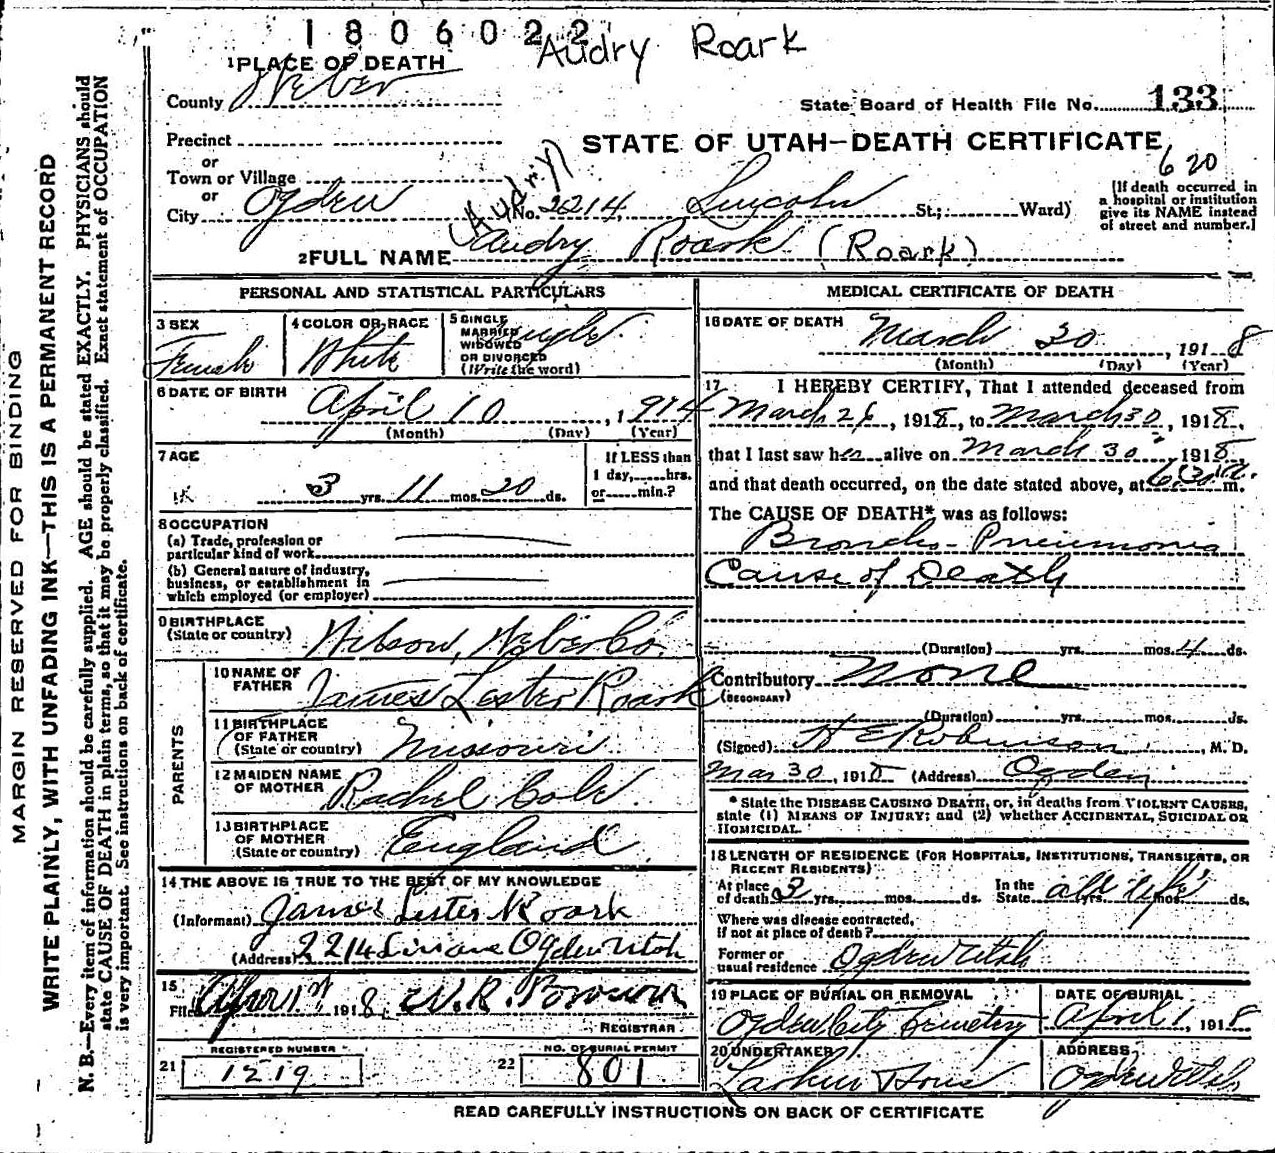 1806022
Audry Roark
1 PLACE OF DEATH
County Weber
State Board of Health File No. 133
Precinct
STATE OF UTAH—DEATH CERTIFICATE
or
Town or Village
620
or
City Ogden
(Audry)
No. 2214 Lincoln St.; Ward)
[If death occurred in
a hospital or institution
give its NAME instead
of street and number.]
2 FULL NAME Audry Roark (Roark)
PERSONAL AND STATISTICAL PARTICULARS
3 SEX
Female
4 COLOR OR RACE
White
5 SINGLE
MARRIED
WIDOWED
OR DIVORCED
(Write the word)
Single
6 DATE OF BIRTH
April 10, 1914
(Month) (Day) (Year)
7 AGE
3 yrs. 11 mos. 20 ds.
If LESS than
1 day, hrs.
or min.?
8 OCCUPATION
(a) Trade, profession or
particular kind of work
(b) General nature of industry,
business, or establishment in
which employed (or employer)
9 BIRTHPLACE
(State or country) Wilson, Weber Co.
PARENTS
10 NAME OF
FATHER James Lester Roark
11 BIRTHPLACE
OF FATHER
(State or country) Missouri
12 MAIDEN NAME
OF MOTHER Rachel Cole
13 BIRTHPLACE
OF MOTHER
(State or country) England
14 THE ABOVE IS TRUE TO THE BEST OF MY KNOWLEDGE
(Informant) James Lester Roark
(Address) 2214 Ogden Utah
15
Filed Apr 1st 1918, W.R.
REGISTRAR
REGISTERED NUMBER
21 1219
NO. OF BURIAL PERMIT
22 801
MEDICAL CERTIFICATE OF DEATH
16 DATE OF DEATH
March 30, 1918
(Month) (Day) (Year)
17 I HEREBY CERTIFY, That I attended deceased from
March 26, 1918, to March 30, 1918,
that I last saw her alive on March 30 1918,
and that death occurred, on the date stated above, at 6:30 m.
The CAUSE OF DEATH* was as follows:
Broncho-Pneumonia
Cause of Death
(Duration) yrs. mos. 4 ds.
Contributory None
(SECONDARY)
(Duration) yrs. mos. ds.
(Signed) H E Robinson, M. D.
Mar 30, 1918 (Address) Ogden
* State the DISEASE CAUSING DEATH, or, in deaths from VIOLENT CAUSES,
state (1) MEANS OF INJURY; and (2) whether ACCIDENTAL, SUICIDAL OR
HOMICIDAL.
18 LENGTH OF RESIDENCE (FOR HOSPITALS, INSTITUTIONS, TRANSIENTS, OR
RECENT RESIDENTS)
At place
of death 3 yrs. mos. ds. In the
State all life yrs. mos. ds.
Where was disease contracted,
if not at place of death?
Former or
usual residence Ogden Utah
19 PLACE OF BURIAL OR REMOVAL
Ogden City Cemetery
DATE OF BURIAL
April 1, 1918
20 UNDERTAKER
Larkin Sons
ADDRESS
Ogden Utah
READ CAREFULLY INSTRUCTIONS ON BACK OF CERTIFICATE
MARGIN RESERVED FOR BINDING
WRITE PLAINLY, WITH UNFADING INK—THIS IS A PERMANENT RECORD
N. B.—Every item of information should be carefully supplied. AGE should be stated EXACTLY. PHYSICIANS should
state CAUSE OF DEATH in plain terms, so that it may be properly classified. Exact statement of OCCUPATION
is very important. See instructions on back of certificate.